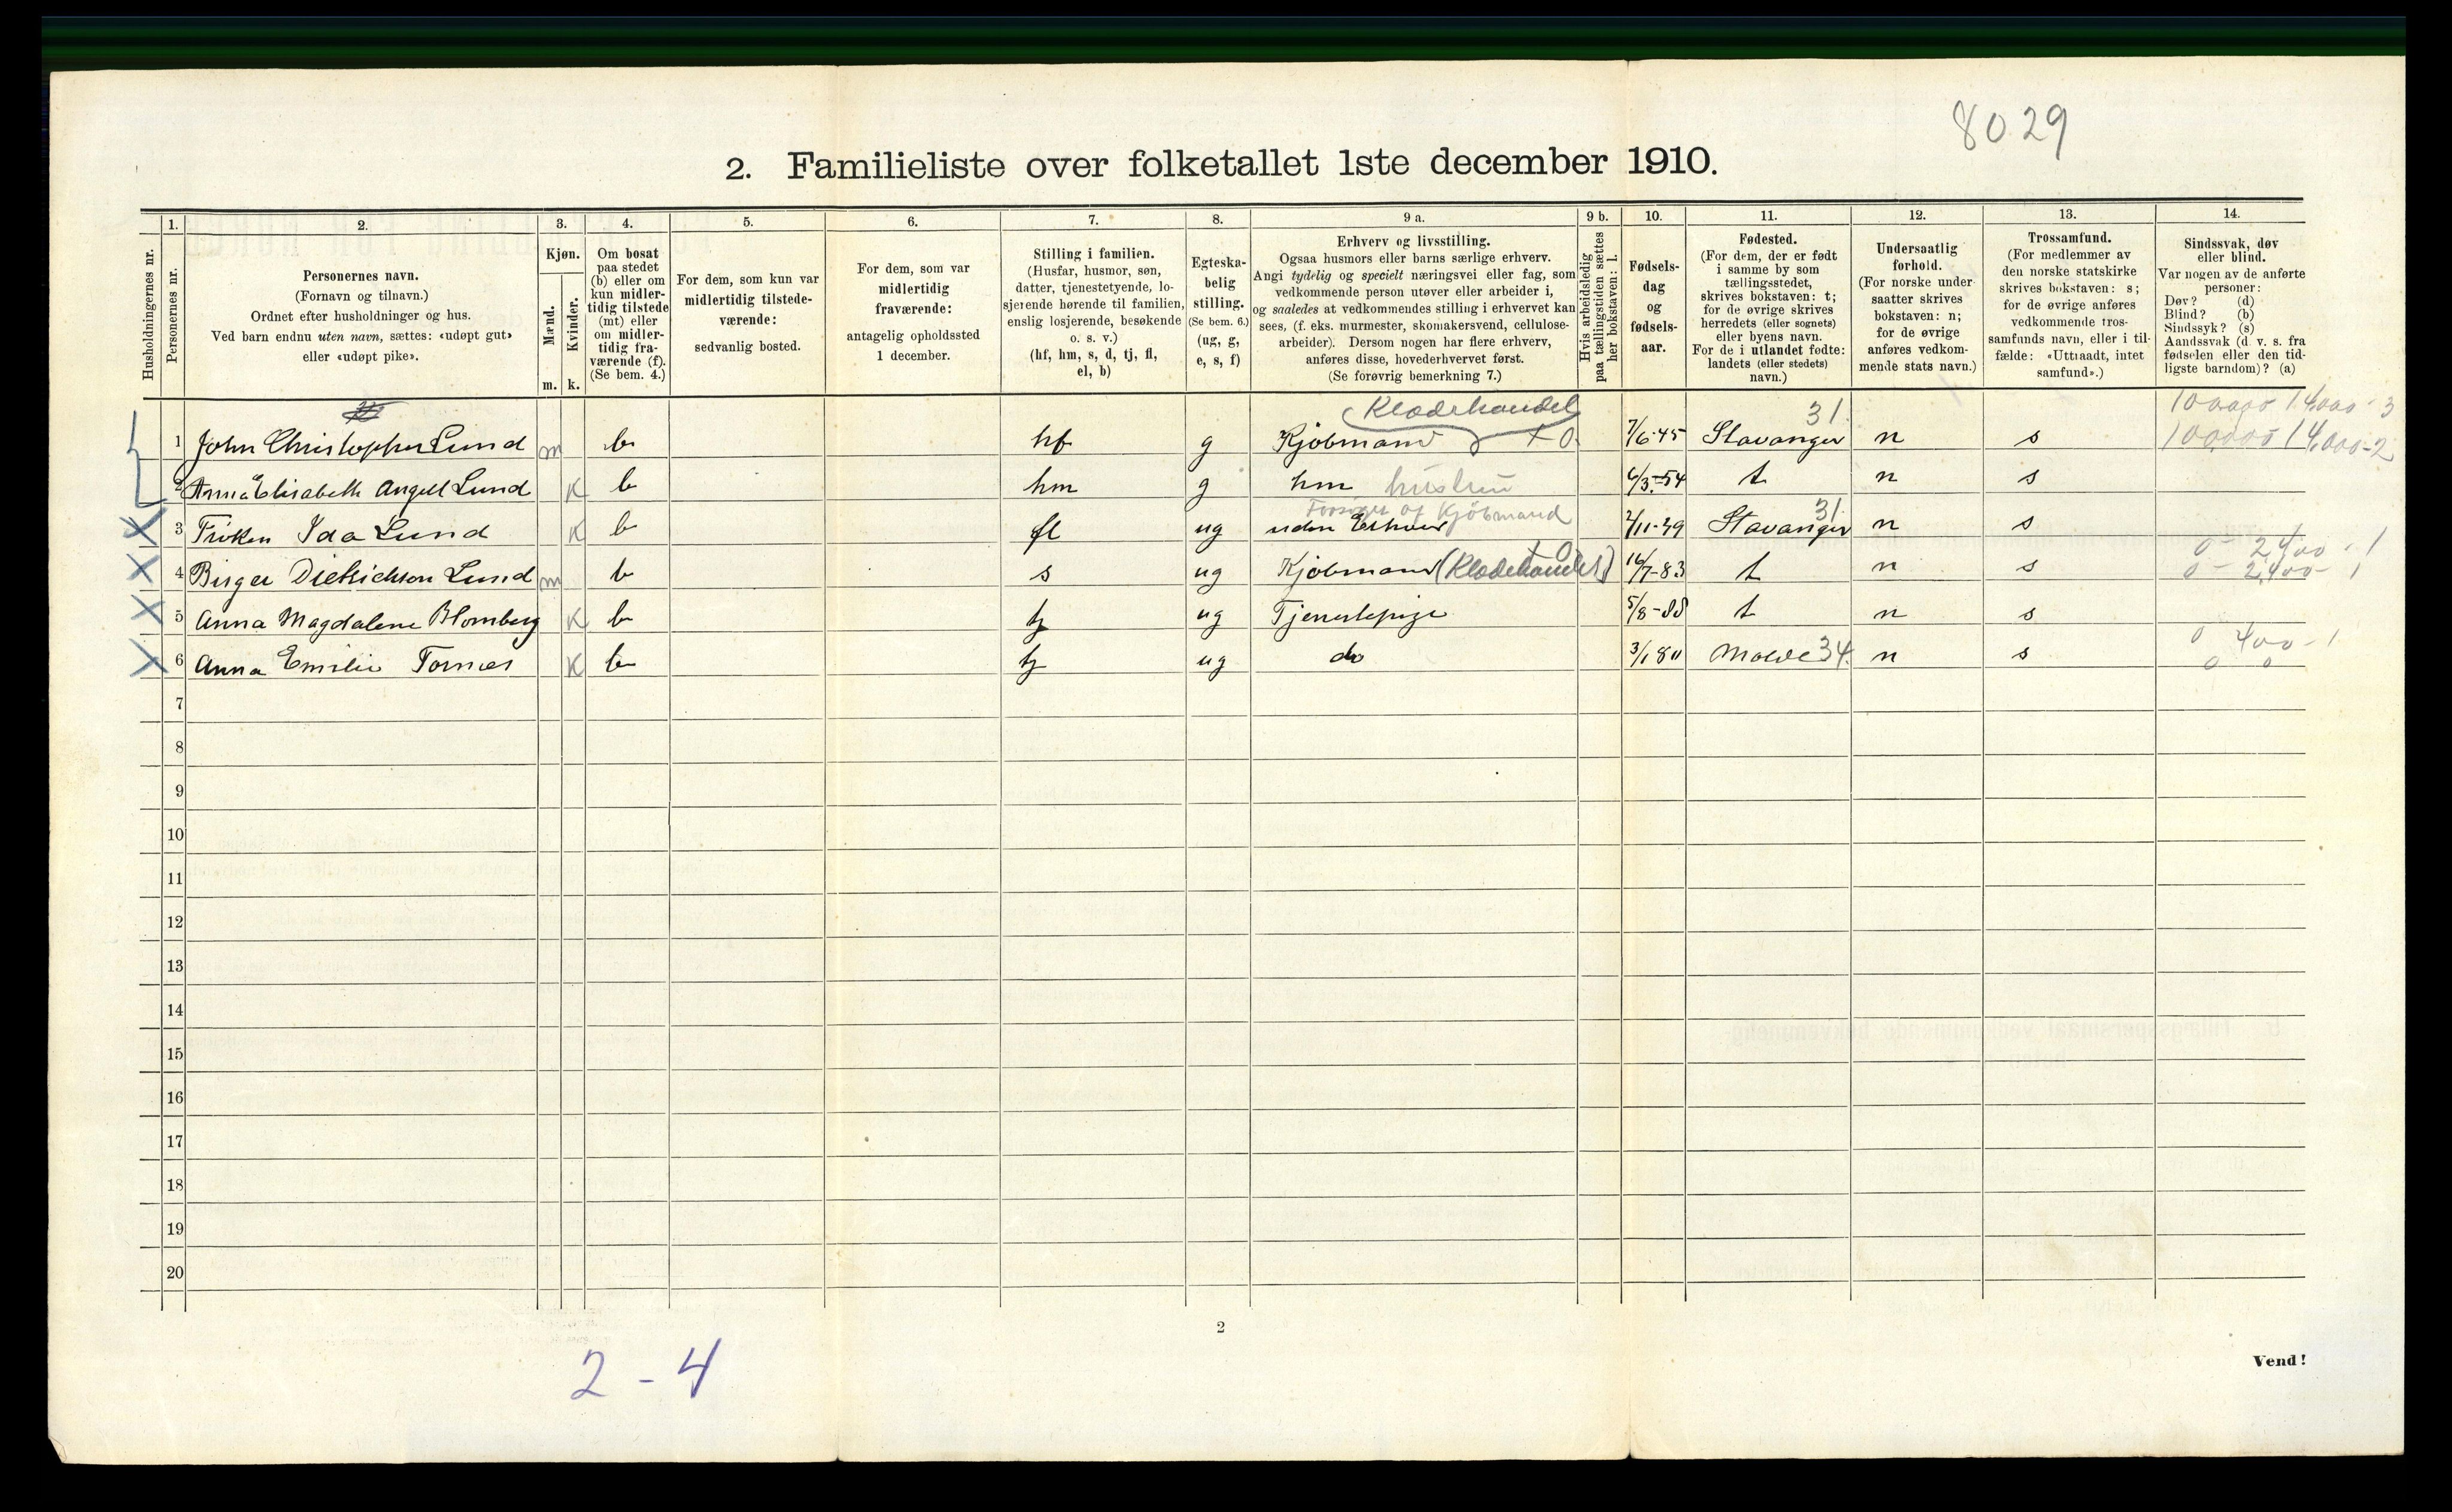 8029
2. Familieliste over folketallet 1ste december 1910.
1. 2. 3. 4. 5. 6. 7. 8. 9 a. 9 b. 10. 11. 12. 13. 14.
Husholdningernes nr.
Personernes nr.
Personernes navn.
(Fornavn og tilnavn.)
Ordnet efter husholdninger og hus.
Ved barn endnu uten navn, sættes: «udøpt gut»
eller «udøpt pike».
Kjøn.
Mænd.
Kvinder.
m. k.
Om bosat
paa stedet
(b) eller om
kun midler-
tidig tilstede
(mt) eller
om midler-
tidig fra-
værende (f).
(Se bem. 4.)
For dem, som kun var
midlertidig tilstede-
værende:
sedvanlig bosted.
For dem, som var
midlertidig
fraværende:
antagelig opholdssted
1 december.
Stilling i familien.
(Husfar, husmor, søn,
datter, tjenestetyende, lo-
sjerende hørende til familien,
enslig losjerende, besøkende
o. s. v.)
(hf, hm, s, d, tj, fl,
el, b)
Egteska-
belig
stilling.
(Se bem. 6.)
(ug, g,
e, s, f)
Erhverv og livsstilling.
Ogsaa husmors eller barns særlige erhverv.
Angi tydelig og specielt næringsvei eller fag, som
vedkommende person utøver eller arbeider i,
og saaledes at vedkommendes stilling i erhvervet kan
sees, (f. eks. murmester, skomakersvend, cellulose-
arbeider). Dersom nogen har flere erhverv,
anføres disse, hovederhvervet først.
(Se forøvrig bemerkning 7.)
Hvis arbeidsledig
paa tællingstiden sættes
her bokstaven: l.
Fødsels-
dag
og
fødsels-
aar.
Fødested.
(For dem, der er født
i samme by som
tællingsstedet,
skrives bokstaven: t;
for de øvrige skrives
herredets (eller sognets)
eller byens navn.
For de i utlandet fødte:
landets (eller stedets)
navn.)
Undersaatlig
forhold.
(For norske under-
saatter skrives
bokstaven: n;
for de øvrige
anføres vedkom-
mende stats navn.)
Trossamfund.
(For medlemmer av
den norske statskirke
skrives bokstaven: s;
for de øvrige anføres
vedkommende tros-
samfunds navn, eller i til-
fælde: «Uttraadt, intet
samfund».)
Sindssvak, døv
eller blind.
Var nogen av de anførte
personer:
Døv? (d)
Blind? (b)
Sindssyk? (s)
Aandssvak (d. v. s. fra
fødselen eller den tid-
ligste barndom)? (a)
Klædehandel 31. 100.000 14000 - 3
1 John Christopher Lund m b hf g Kjøbmand + 0. 7/6-45 Stavanger n s 100.000 14,000-2
2 Anna Elisabeth Angell Lund K b hm g hm hustru 6/3-54 t n s
Forsørges af Kjøbmand 31.
3 Frøken Ida Lund K b fl ug uden Erhverv 2/11-49 Stavanger n s
+0 0 - 2400 - 1
4 Birger Dietrichson Lund m b s ug Kjøbmand (Klædehandel) 16/7-83 t n s 0 - 2,400 - 1
5 Anna Magdalene Blomberg K b tj ug Tjenestepige 5/8-88 t n s
0 400 - 1
6 Anna Emilie Tornæs K b tj ug do 3/1 80 Molde 34. n s 0 0
7
8
9
10
11
12
13
14
15
16
17
18
19
20
2
Vend!
2 - 4